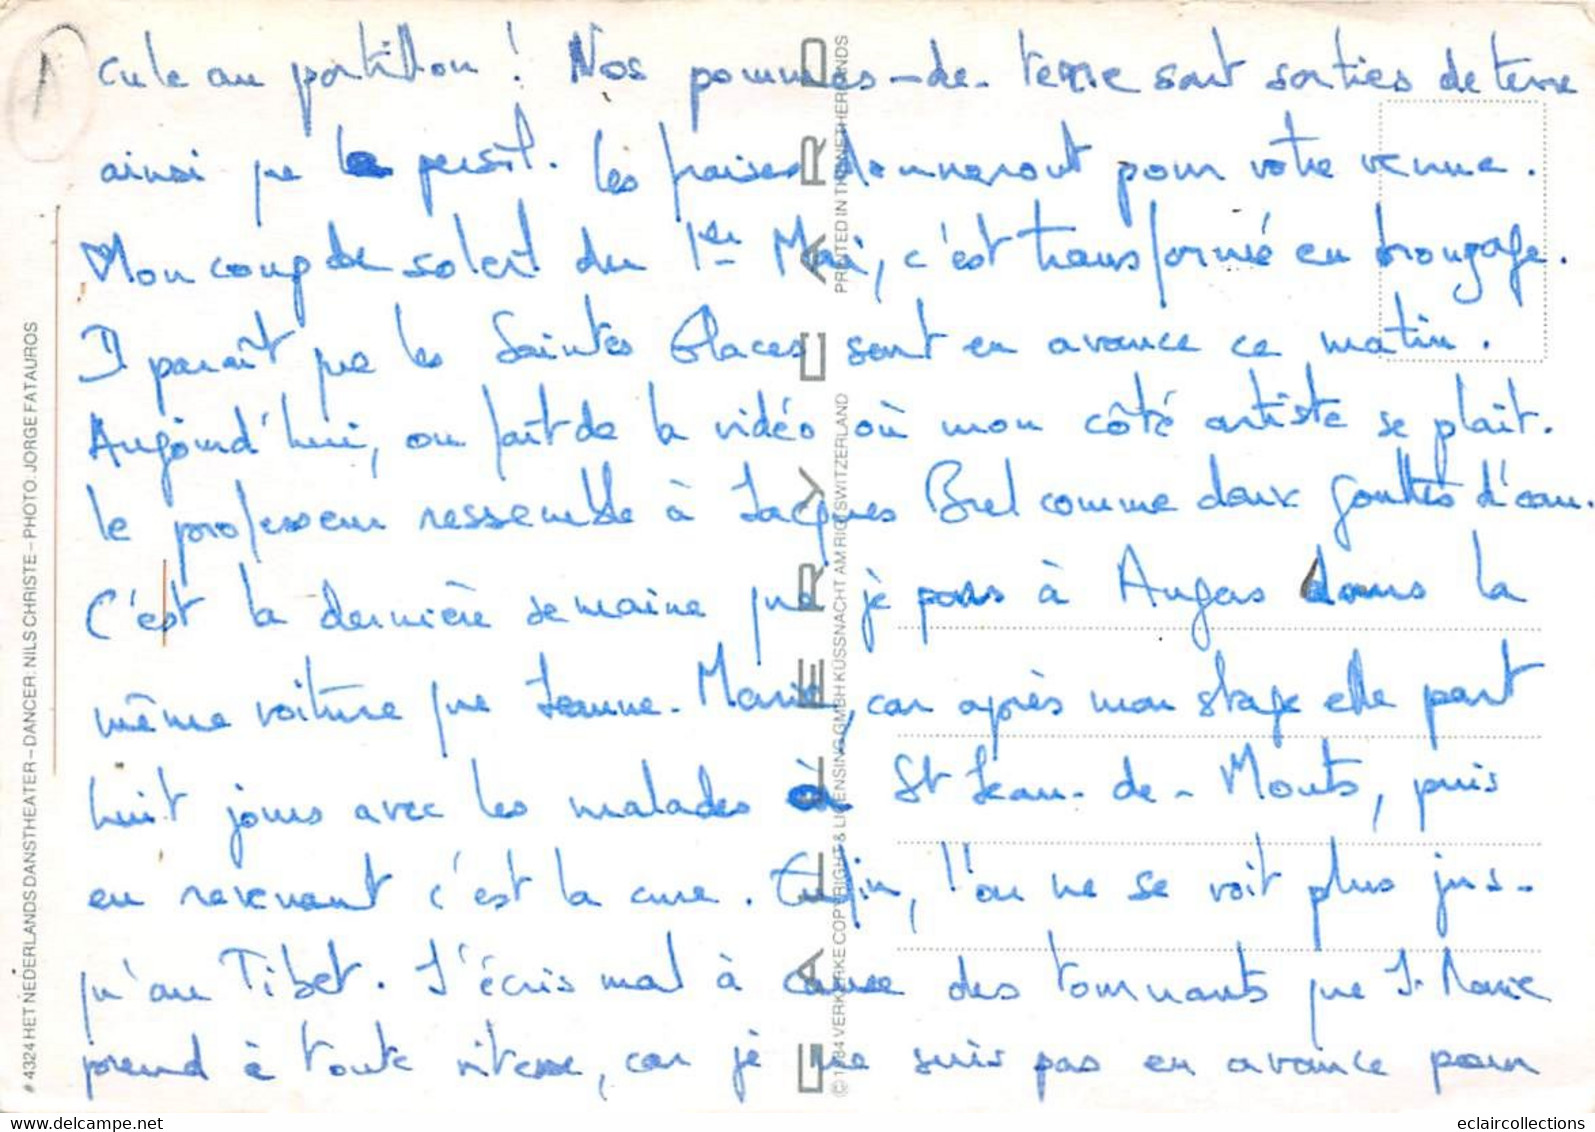 cule au portillon ! Nos pommes-de-terre sont sorties de terre
ainsi que le persil. Les fraises donneront pour votre venue.
Mon coup de soleil du 1er Mai, c'est transformé en bronzage.
Il paraît que les Saintes Glaces sont en avance ce matin.
Aujourd'hui, on fait de la vidéo où mon côté artiste se plaît.
Le professeur ressemble à Jacques Brel comme deux gouttes d'eau.
C'est la dernière semaine que je pars à Angers dans la
même voiture que Jeanne-Marie, car après mon stage elle part
huit jours avec les malades à St Jean-de-Monts, puis
en revenant c'est la cure. Enfin, l'on ne se voit plus jus-
qu'au Tibet. J'écris mal à cause des tournants que J-Marie
prend à toute vitesse, car je ne suis pas en avance pour
GALLERY CARD
© 1984 VERKERKE COPYRIGHT & LICENSING GMBH KÜSSNACHT AM RIGI SWITZERLAND PRINTED IN THE NETHERLANDS
# 4324 HET NEDERLANDS DANSTHEATER – DANCER: NILS CHRISTE – PHOTO: JORGE FATAUROS
eclaircollections